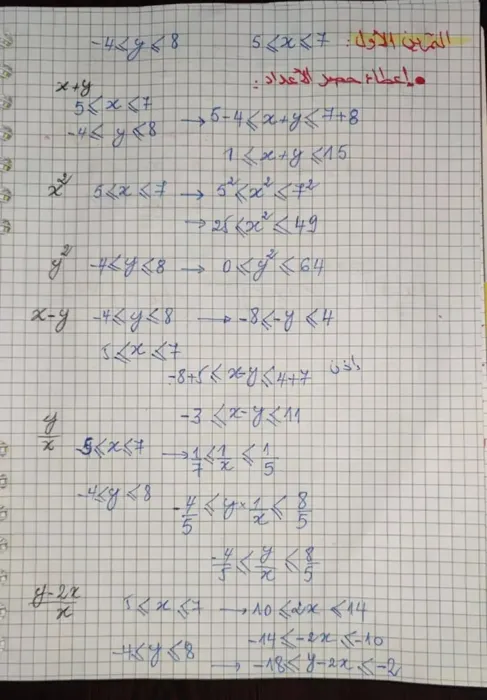 التمرين الأول: 5 ≤ x ≤ 7   -4 ≤ y ≤ 8
• إعطاء حصر الأعداد:
x+y
5 ≤ x ≤ 7
-4 ≤ y ≤ 8 → 5-4 ≤ x+y ≤ 7+8
1 ≤ x+y ≤ 15
x² 5 ≤ x ≤ 7 → 5² ≤ x² ≤ 7²
→ 25 ≤ x² ≤ 49
y² -4 ≤ y ≤ 8 → 0 ≤ y² ≤ 64
x-y -4 ≤ y ≤ 8 → -8 ≤ -y ≤ 4
5 ≤ x ≤ 7
إذن -8+5 ≤ x-y ≤ 4+7
-3 ≤ x-y ≤ 11
y/x 5 ≤ x ≤ 7 → 1/7 ≤ 1/x ≤ 1/5
-4 ≤ y ≤ 8 -4/5 ≤ y × 1/x ≤ 8/5
-4/5 ≤ y/x ≤ 8/5
(y-2x)/x 5 ≤ x ≤ 7 → 10 ≤ 2x ≤ 14
-14 ≤ -2x ≤ -10
-4 ≤ y ≤ 8 → -18 ≤ y-2x ≤ -2